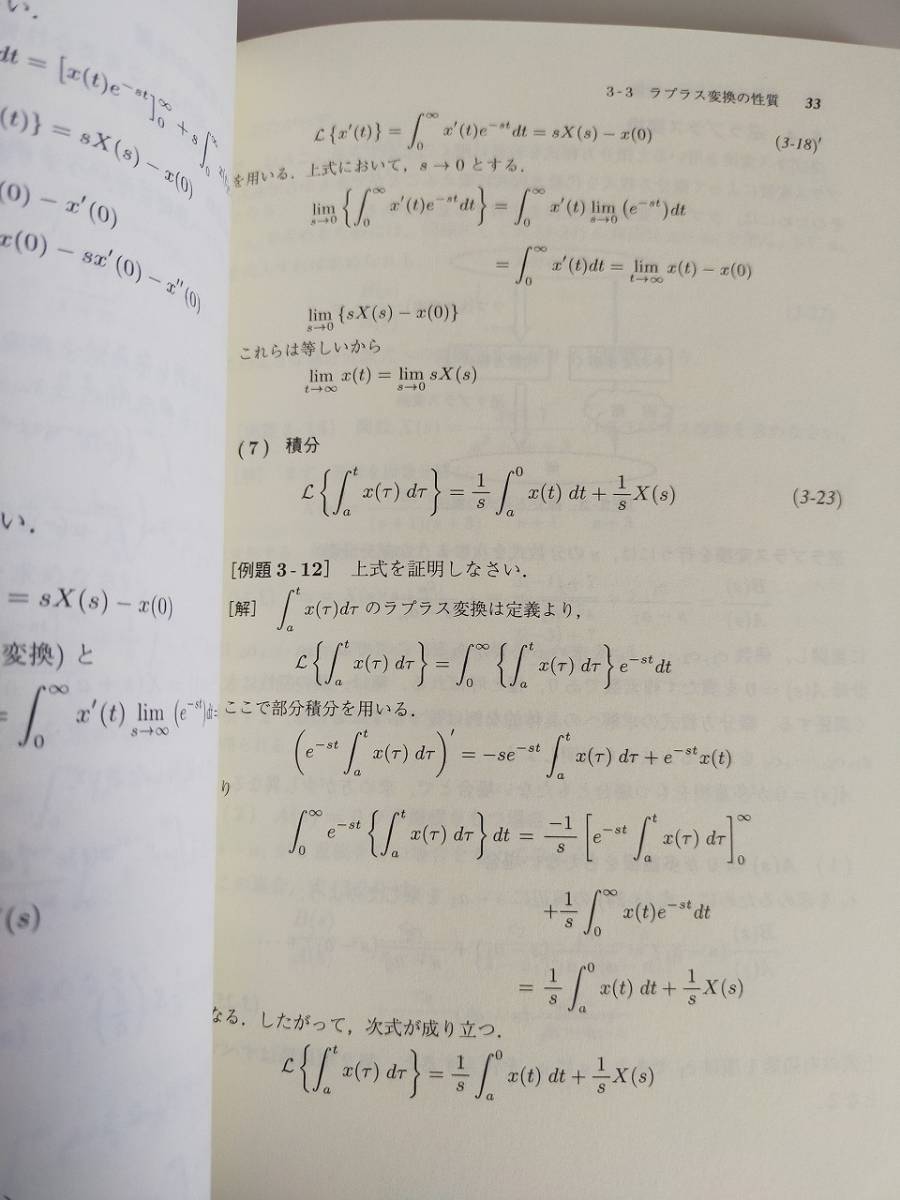 い．
dt = [x(t)e^{-st}]_0^∞ + s∫_0
(t)} = sX(s) − x(0)
(0) − x′(0)
x(0) − sx′(0) − x″(0)
い．
= sX(s) − x(0)
変換) と
= ∫_0^∞ x′(t) lim_{s→∞} (e^{-st})dt=
(s)
3-3 ラプラス変換の性質 33
ℒ{x′(t)} = ∫_0^∞ x′(t)e^{-st}dt = sX(s) − x(0) (3-18)′
を用いる．上式において，s → 0 とする．
lim_{s→0} {∫_0^∞ x′(t)e^{-st}dt} = ∫_0^∞ x′(t) lim_{s→0} (e^{-st})dt
= ∫_0^∞ x′(t)dt = lim_{t→∞} x(t) − x(0)
lim_{s→0} {sX(s) − x(0)}
これらは等しいから
lim_{t→∞} x(t) = lim_{s→0} sX(s)
(7) 積分
ℒ{∫_a^t x(τ) dτ} = 1/s ∫_a^0 x(t) dt + 1/s X(s) (3-23)
[例題 3-12] 上式を証明しなさい．
[解] ∫_a^t x(τ)dτ のラプラス変換は定義より，
ℒ{∫_a^t x(τ) dτ} = ∫_0^∞ {∫_a^t x(τ) dτ} e^{-st}dt
ここで部分積分を用いる．
(e^{-st} ∫_a^t x(τ) dτ)′ = −se^{-st} ∫_a^t x(τ) dτ + e^{-st}x(t)
り
∫_0^∞ e^{-st} {∫_a^t x(τ) dτ} dt = −1/s [e^{-st} ∫_a^t x(τ) dτ]_0^∞
+ 1/s ∫_0^∞ x(t)e^{-st}dt
= 1/s ∫_a^0 x(t) dt + 1/s X(s)
なる．したがって，次式が成り立つ．
ℒ{∫_a^t x(τ) dτ} = 1/s ∫_a^0 x(t) dt + 1/s X(s)